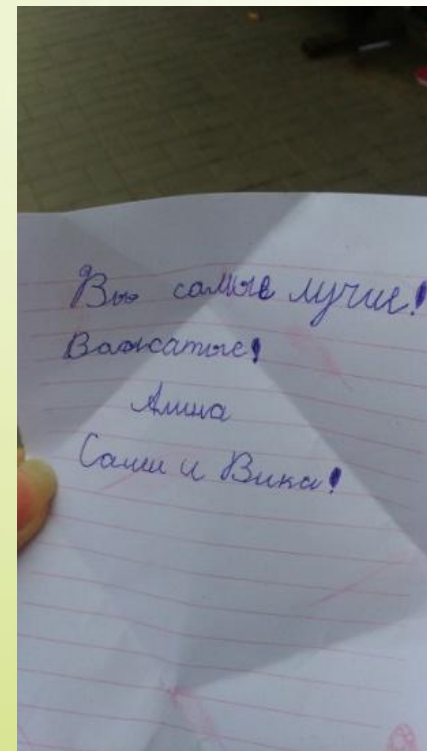 Вы самые лучие!
Вожатые!
Алина
Саши и Вика!